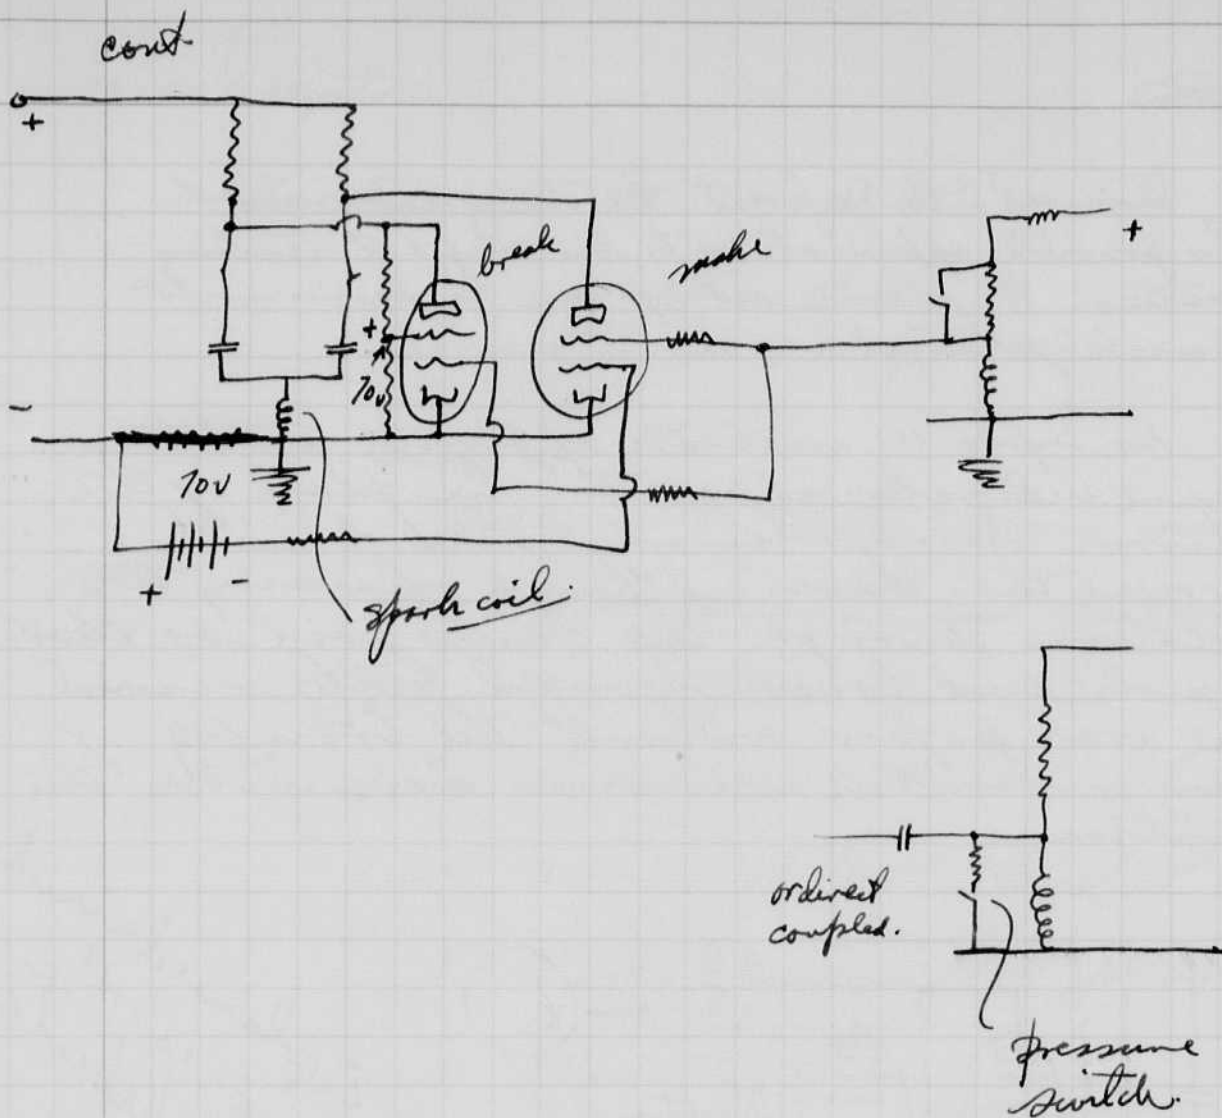 cont
+
break
make
+
+
70v
-
70v
+ -
spark coil.
or direct
coupled.
pressure
switch.